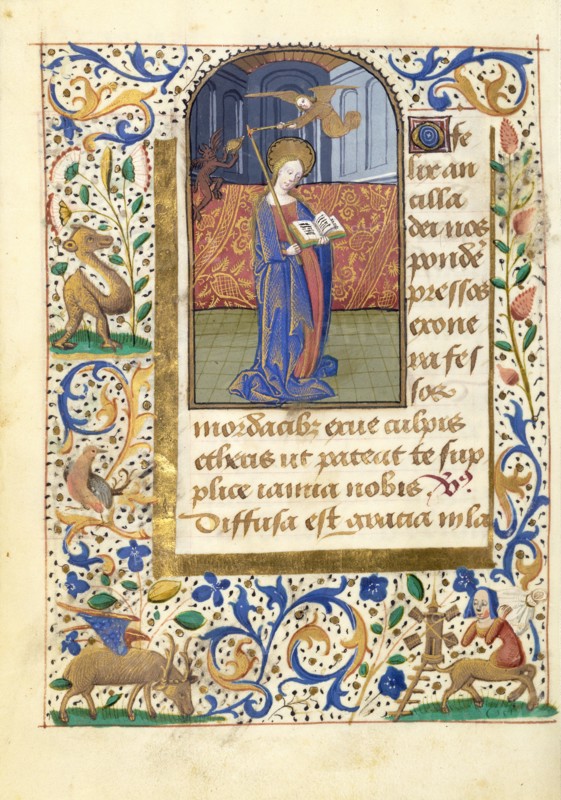 O fe
lix an
cilla
dei nos
pondē
pressos
exone
ra fes
sos
mordacibʒ exue culpis
etheris ut pateat te sup
plice ianua nobis V̛s.
Diffusa est gracia in la